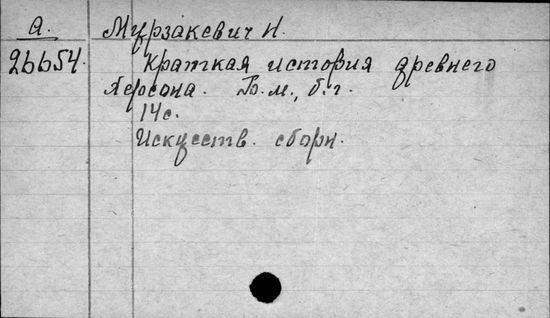 А. Мурзакевич Н.
26654. Краткая история древнего
Херсона. Б.м., б.г.
14с.
Искусств. сборн.